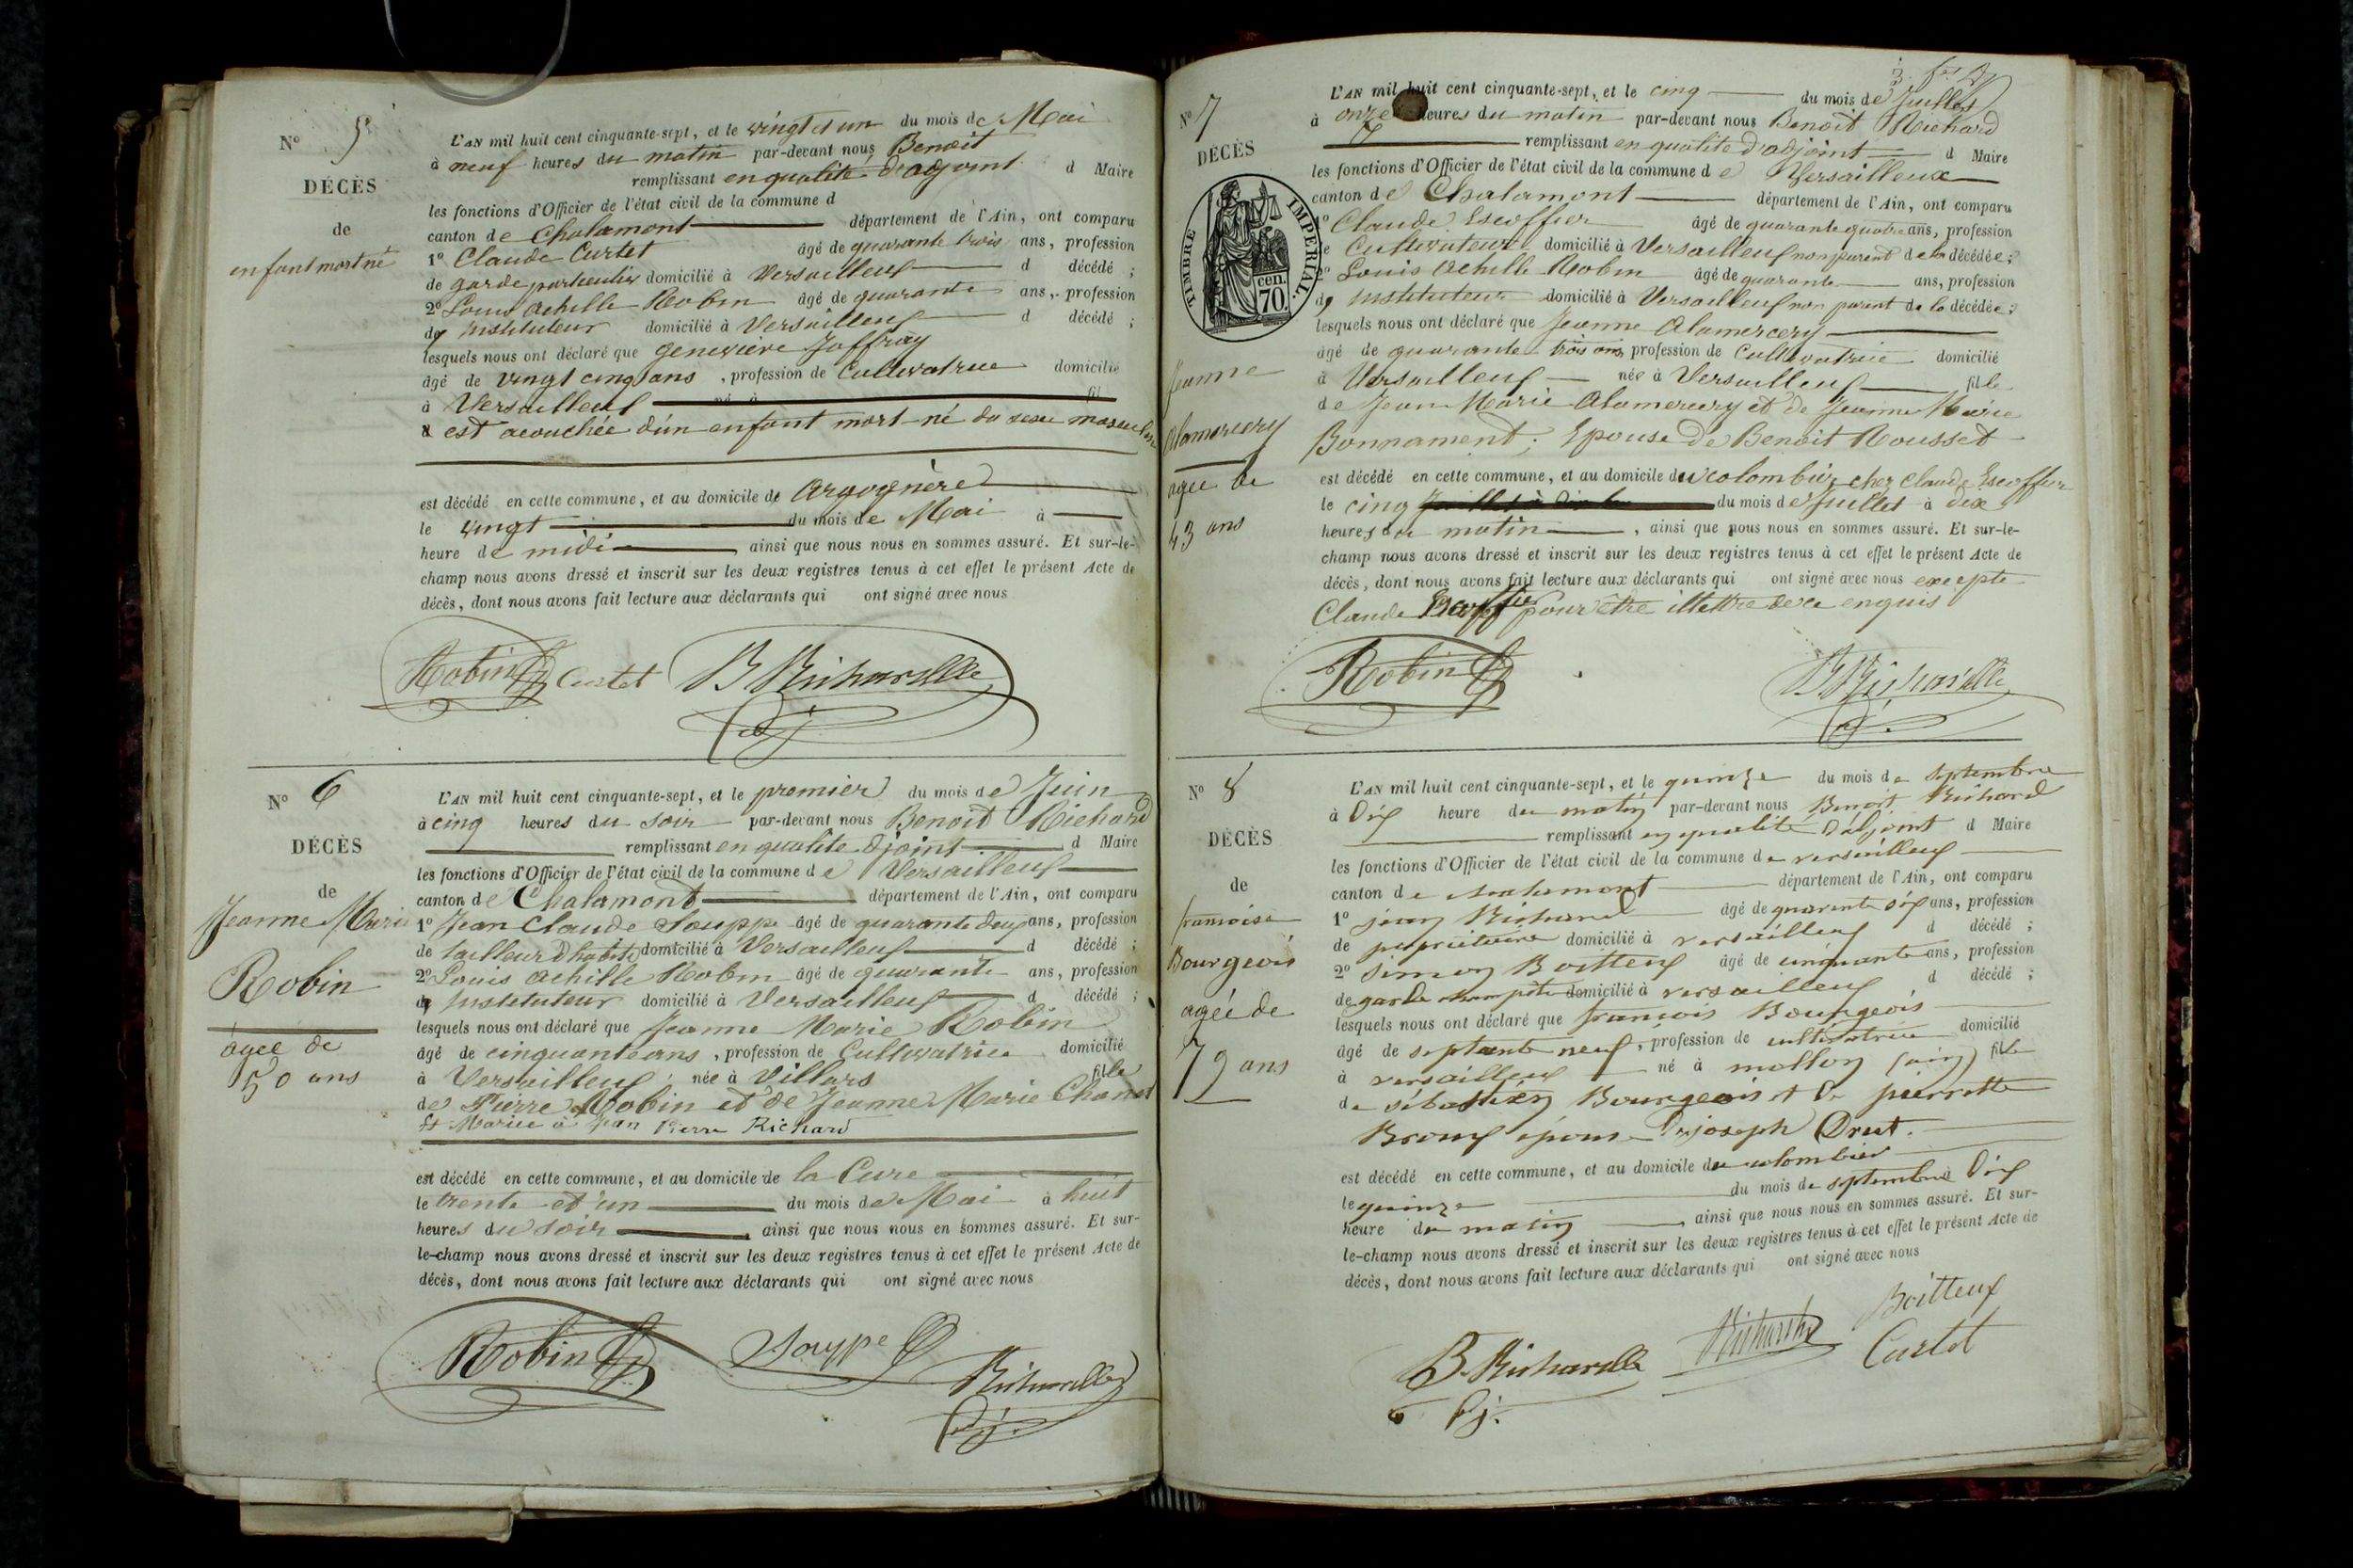 N° 5
DÉCÈS
de
enfant mort né
L'AN mil huit cent cinquante-sept, et le vingt et un du mois de Mai
à neuf heures du matin par-devant nous Benoit
remplissant en qualité d'adjoint d Maire
les fonctions d'Officier de l'état civil de la commune d
canton de Chalamont département de l'Ain, ont comparu
1° Claude Curtet âgé de quarante trois ans, profession
de garde particulier domicilié à Versailleux d décédé ;
2° Louis Achille Robin âgé de quarante ans, profession
d' instituteur domicilié à Versailleux d décédé ;
lesquels nous ont déclaré que Geneviève Joffray
âgé de vingt cinq ans, profession de Cultivatrice domicilié
à Versailleux né à fil
est acouchée d'un enfant mort-né du sexe masculin
est décédé en cette commune, et au domicile de
le vingt du mois de Mai à
heure de midi ainsi que nous nous en sommes assuré. Et sur-le-
champ nous avons dressé et inscrit sur les deux registres tenus à cet effet le présent Acte de
décès, dont nous avons fait lecture aux déclarants qui ont signé avec nous
Robin Curtet B Richard
N° 6
DÉCÈS
de
Jeanne Marie
Robin
âgée de
50 ans
L'AN mil huit cent cinquante-sept, et le premier du mois de Juin
à cinq heures du soir par-devant nous Benoit Richard
remplissant en qualité djoint d Maire
les fonctions d'Officier de l'état civil de la commune de Versailleux
canton de Chalamont département de l'Ain, ont comparu
1° Jean Claude Souppe âgé de quarante deux ans, profession
de tailleur d'habits domicilié à Versailleux d décédé ;
2° Louis Achille Robin âgé de quarante ans, profession
d' instituteur domicilié à Versailleux d décédé ;
lesquels nous ont déclaré que Jeanne Marie Robin
âgé de cinquante ans, profession de Cultivatrice domicilié
à Versailleux née à Villars fille
de Pierre Robin et de Jeanne Marie Chanel
et Mariée à Jean Pierre Richard
est décédé en cette commune, et au domicile de la Cure
le trente et un du mois de Mai à huit
heures du soir ainsi que nous nous en sommes assuré. Et sur-
le-champ nous avons dressé et inscrit sur les deux registres tenus à cet effet le présent Acte de
décès, dont nous avons fait lecture aux déclarants qui ont signé avec nous
Robin Souppe Richard
N° 7
DÉCÈS
TIMBRE IMPÉRIAL.
cen. 70.
Jeanne
Alamercery
agée de
43 ans
L'AN mil huit cent cinquante-sept, et le cinq du mois de Juillet
à onze heures du matin par-devant nous Benoit Richard
remplissant en qualité d'adjoint d Maire
les fonctions d'Officier de l'état civil de la commune de Versailleux
canton de Chalamont département de l'Ain, ont comparu
1° Claude Escoffier âgé de quarante quatre ans, profession
de Cultivateur domicilié à Versailleux non parent de la décédée ;
2° Louis Achille Robin âgé de quarante ans, profession
d' instituteur domicilié à Versailleux non parent de la décédée ;
lesquels nous ont déclaré que Jeanne Alamercery
âgé de quarante trois ans, profession de Cultivatrice domicilié
à Versailleux née à Versailleux fille
de Jean Marie Alamercery et de Jeanne Marie
Bonnament ; Epouse de Benoit Rousset
est décédé en cette commune, et au domicile du colombier chez Claude Escoffier
le cinq du mois de Juillet à dix
heures du matin, ainsi que nous nous en sommes assuré. Et sur-le-
champ nous avons dressé et inscrit sur les deux registres tenus à cet effet le présent Acte de
décès, dont nous avons fait lecture aux déclarants qui ont signé avec nous excepté
Claude Escoffier pour être illettré de ce enquis
Robin B Richard
N° 8
DÉCÈS
de
francoise
Bourgeois
agée de
79 ans
L'AN mil huit cent cinquante-sept, et le quinze du mois de septembre
à Dix heure du matin par-devant nous Benoit Richard
remplissant en qualité d'adjoint d Maire
les fonctions d'Officier de l'état civil de la commune de versailleux
canton de chalamont département de l'Ain, ont comparu
1° jean Richard âgé de quarente six ans, profession
de propriétaire domicilié à versailleux d décédé ;
2° simon Boitteux âgé de cinquante ans, profession
de garde champêtre domicilié à versailleux d décédé ;
lesquels nous ont déclaré que francois Bourgeois
âgé de septante neuf, profession de cultivatrice domicilié
à versailleux né à mollon (ain) fille
de sébastien Bourgeois et de pierrette
Broux épouse de joseph Drut.
est décédé en cette commune, et au domicile du colombier
le quinze du mois de septembre à Dix
heure du matin ainsi que nous nous en sommes assuré. Et sur-
le-champ nous avons dressé et inscrit sur les deux registres tenus à cet effet le présent Acte de
décès, dont nous avons fait lecture aux déclarants qui ont signé avec nous
B. Richard Richard Boitteux
Curtet